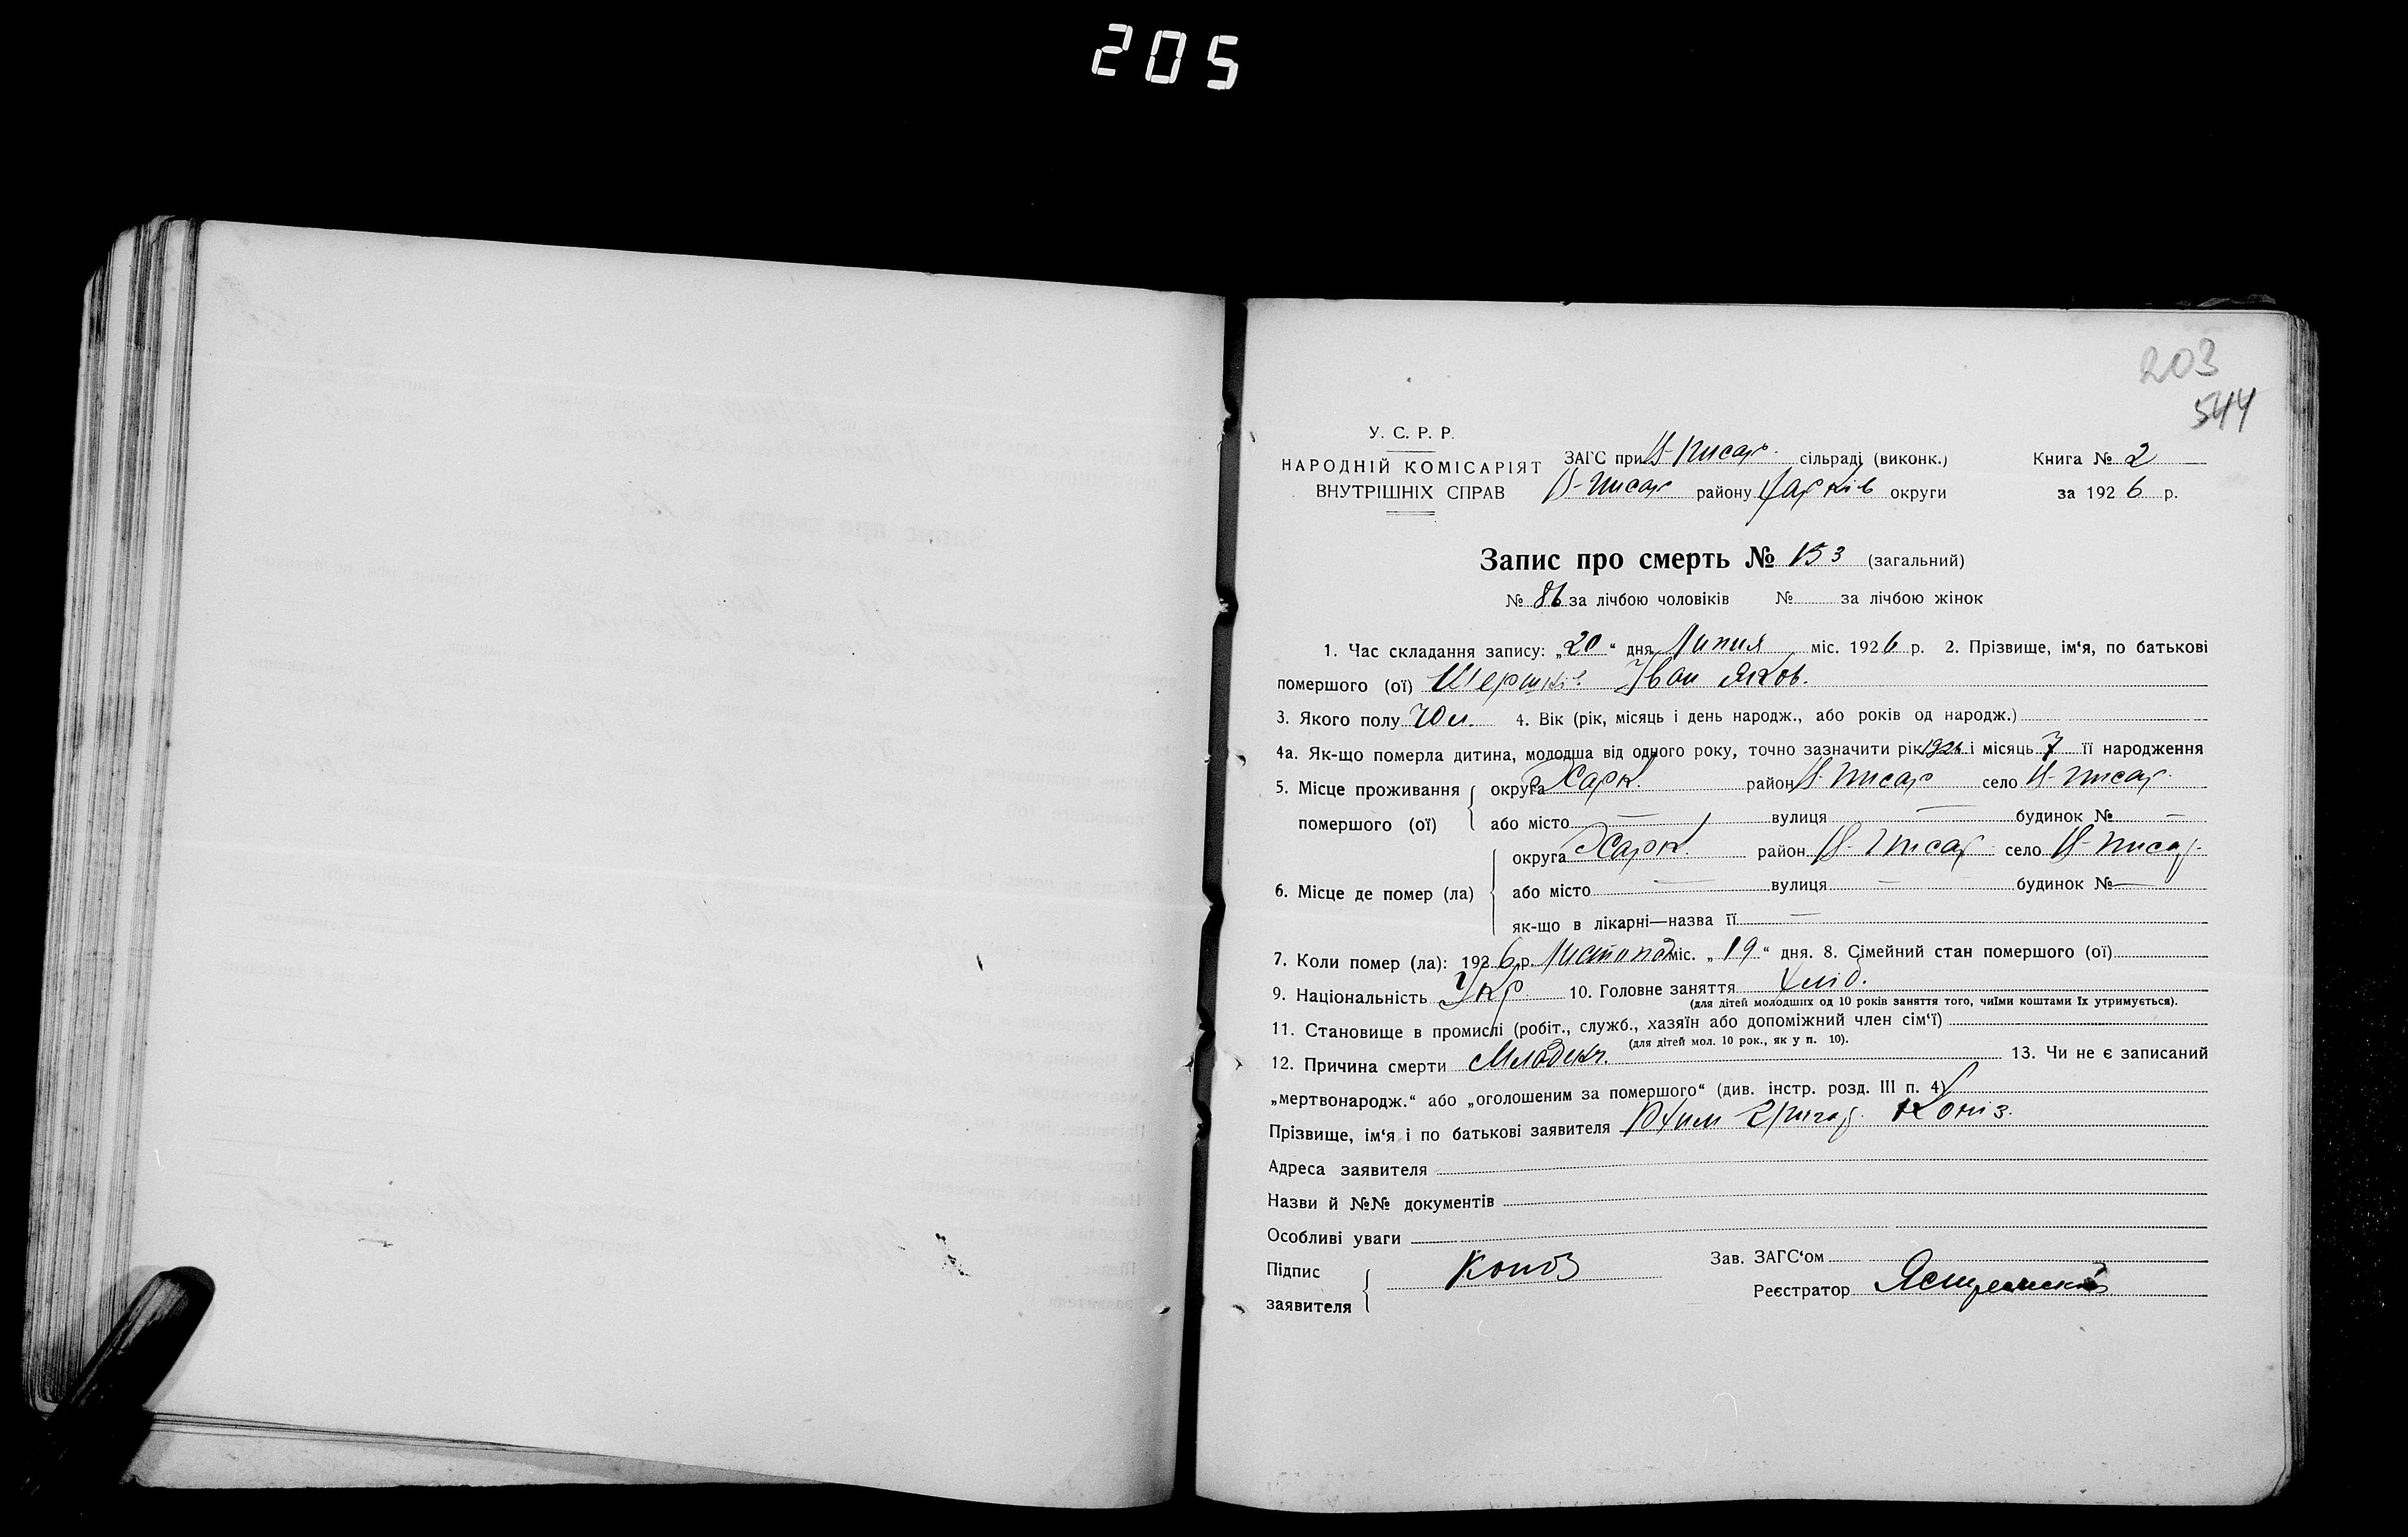 205
203
544
У. С. Р. Р.
НАРОДНІЙ КОМІСАРІЯТ
ВНУТРІШНІХ СПРАВ
ЗАГС при Н-Писар. сільраді (виконк.)
Н-Писар району Харків округи
Книга № 2
за 1926 р.
Запис про смерть № 153 (загальний)
№ 86 за лічбою чоловіків № за лічбою жінок
1. Час складання запису: „20“ дня Липня міс. 1926 р. 2. Прізвище, ім‘я, по батькові
помершого (ої) Іван Яков.
3. Якого полу Чол. 4. Вік (рік, місяць і день народж., або років од народж.)
4а. Як-що померла дитина, молодша від одного року, точно зазначити рік 1926 і місяць 7 її народження
5. Місце проживання помершого (ої)
округа Харк. район Н-Писар село Н-Писар.
або місто — вулиця — будинок № —
6. Місце де помер (ла)
округа Харк. район Н-Писар село Н-Писар.
або місто — вулиця — будинок № —
як-що в лікарні—назва її —
7. Коли помер (ла): 1926 р. Листопад міс. „19“ дня. 8. Сімейний стан помершого (ої)
9. Національність Укр 10. Головне заняття Хліб.
(для дітей молодших од 10 років заняття того, чиїми коштами їх утримується).
11. Становище в промислі (робіт., служб., хазяїн або допоміжний член сім‘ї)
(для дітей мол. 10 рок., як у п. 10).
12. Причина смерти Младенч. 13. Чи не є записаний
„мертвонародж.“ або „оголошеним за помершого“ (див. інстр. розд. III п. 4)
Прізвище, ім‘я і по батькові заявителя Юхим Григор.
Адреса заявителя
Назви й №№ документів
Особливі уваги
Підпис
заявителя
Зав. ЗАГС‘ом
Реєстратор